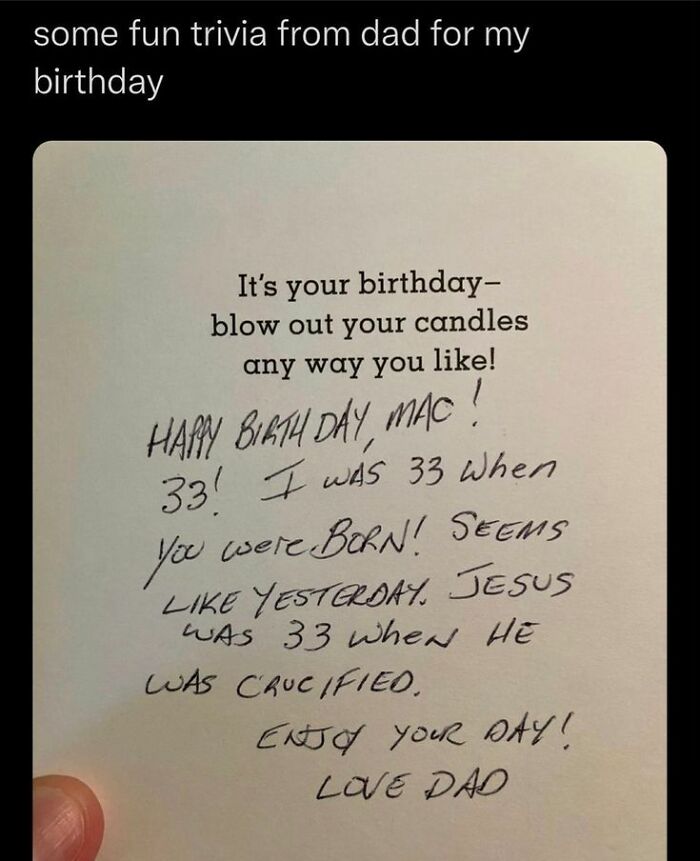 some fun trivia from dad for my
birthday
It's your birthday–
blow out your candles
any way you like!
HAPPY BIRTHDAY, MAC!
33! I WAS 33 When
You were BORN! SEEMS
LIKE YESTERDAY. JESUS
WAS 33 when HE
WAS CRUCIFIED.
ENJOY YOUR DAY!
LOVE DAD